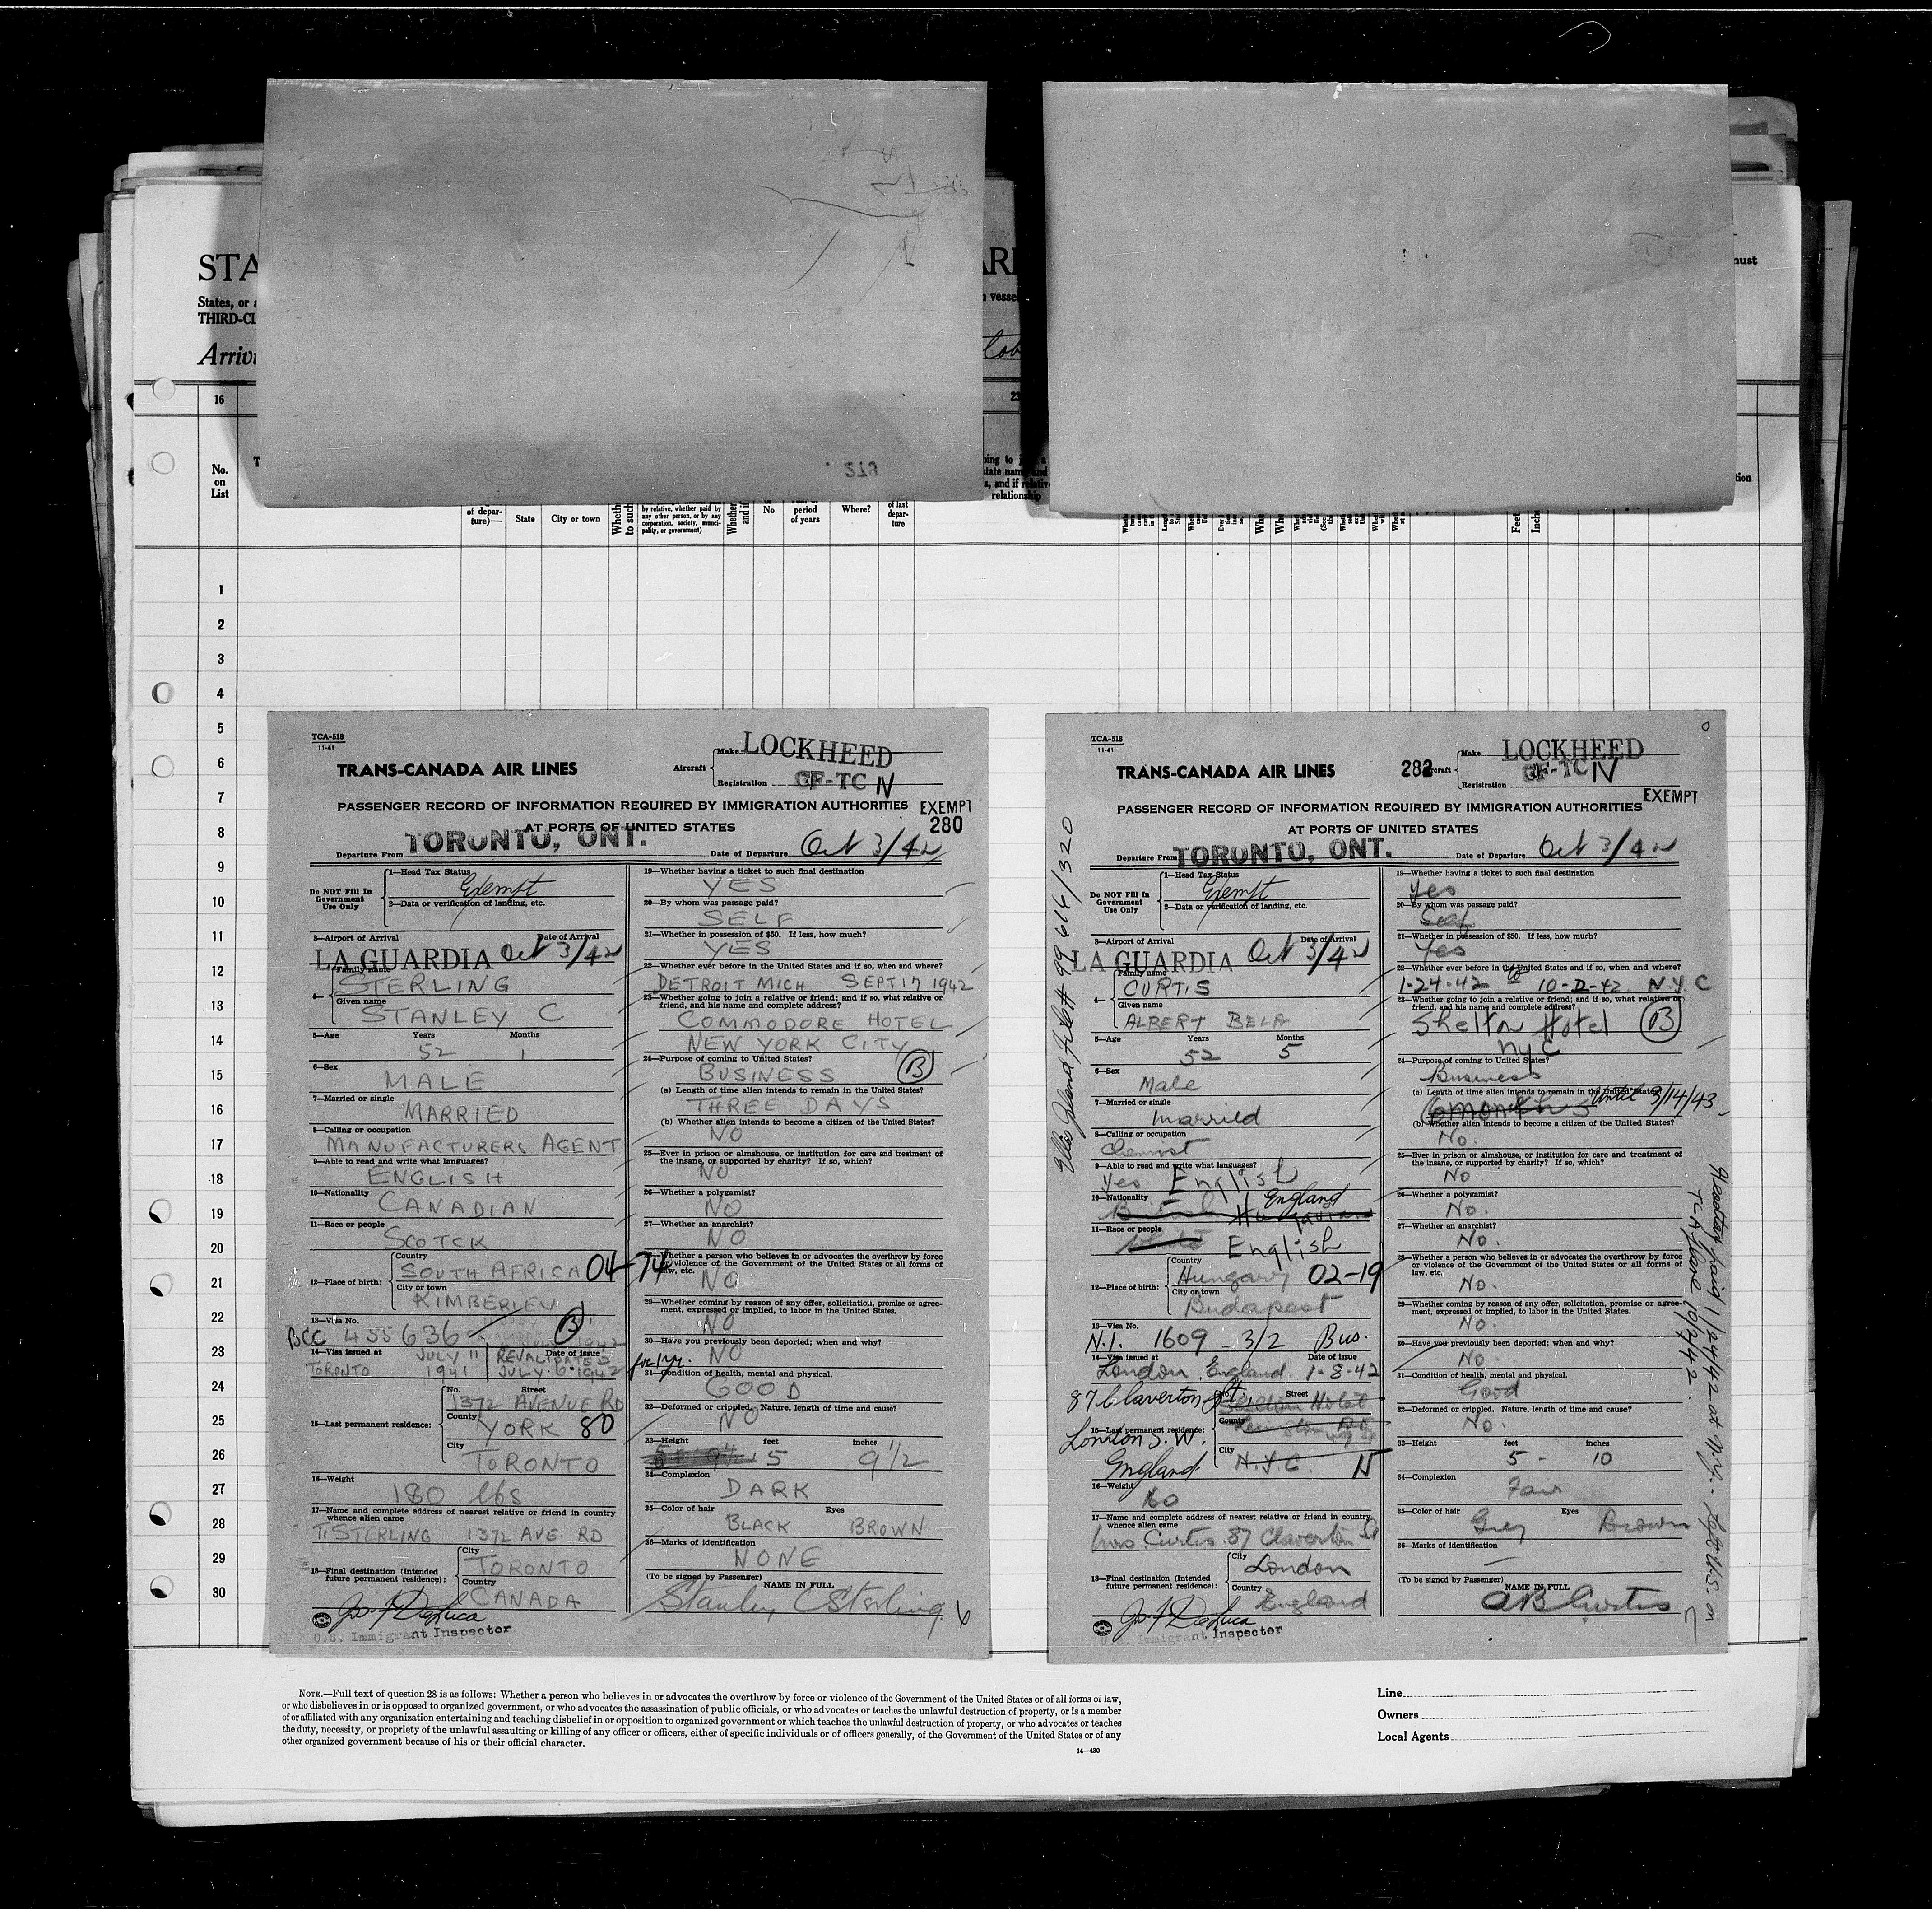 STA
ARI
States, or a
n vesse
nust
THIRD-CL
Arriv
tob
16
23
No.
on
List
of depar-
ture)—
State
City or town
Wheth
to such
by relative, whether paid by
any other person, or by any
corporation, society, munici-
pality, or government)
No
period
of years
Where?
of last
depar-
ture
relationship
tion
Feet
Inche
1
2
3
4
5
6
7
8
9
10
11
12
13
14
15
16
17
18
19
20
21
22
23
24
25
26
27
28
29
30
279
TCA-518
11-41
TRANS-CANADA AIR LINES
Aircraft
Make LOCKHEED
Registration CF-TC N
PASSENGER RECORD OF INFORMATION REQUIRED BY IMMIGRATION AUTHORITIES
EXEMPT
280
AT PORTS OF UNITED STATES
Departure From TORONTO, ONT.
Date of Departure Oct 3/42
Do NOT Fill In
Government
Use Only
1—Head Tax Status
Exempt
2—Data or verification of landing, etc.
3—Airport of Arrival
Date of Arrival
LA GUARDIA Oct 3/42
4—
Family name
STERLING
Given name
STANLEY C
5—Age Years Months
52 1
6—Sex
MALE
7—Married or single
MARRIED
8—Calling or occupation
MANUFACTURERS AGENT
9—Able to read and write what languages?
ENGLISH
10—Nationality
CANADIAN
11—Race or people
SCOTCK
12—Place of birth:
Country
SOUTH AFRICA 04-74
City or town
KIMBERLEY
13—Visa No.
BCC 455636 B
14—Visa issued at
Date of issue
TORONTO
JULY 11
1941
REVALIDATED
JULY 6 1942
for 1 yr.
15—Last permanent residence:
No. Street
1372 AVENUE RD
County
YORK 80
City
TORONTO
16—Weight
180 lbs
17—Name and complete address of nearest relative or friend in country
whence alien came
T. STERLING 1372 AVE. RD
18—Final destination (Intended
future permanent residence):
City
TORONTO
Country
CANADA
Jos. F. DeLuca
U.S. Immigrant Inspector
19—Whether having a ticket to such final destination
YES
20—By whom was passage paid?
SELF
21—Whether in possession of $50. If less, how much?
YES
22—Whether ever before in the United States and if so, when and where?
DETROIT MICH SEPT 17 1942
23—Whether going to join a relative or friend; and if so, what relative or
friend, and his name and complete address?
COMMODORE HOTEL
NEW YORK CITY
24—Purpose of coming to United States?
BUSINESS B
(a) Length of time alien intends to remain in the United States?
THREE DAYS
(b) Whether alien intends to become a citizen of the United States?
NO
25—Ever in prison or almshouse, or institution for care and treatment of
the insane, or supported by charity? If so, which?
NO
26—Whether a polygamist?
NO
27—Whether an anarchist?
NO
28—Whether a person who believes in or advocates the overthrow by force
or violence of the Government of the United States or all forms of
law, etc.
NO
29—Whether coming by reason of any offer, solicitation, promise or agree-
ment, expressed or implied, to labor in the United States.
NO
30—Have you previously been deported; when and why?
NO
31—Condition of health, mental and physical.
GOOD
32—Deformed or crippled. Nature, length of time and cause?
NO
33—Height feet inches
5 9 1/2
34—Complexion
DARK
35—Color of hair Eyes
BLACK BROWN
36—Marks of identification
NONE
(To be signed by Passenger)
NAME IN FULL
Stanley C Sterling
TCA-518
11-41
TRANS-CANADA AIR LINES
282
Aircraft
Make LOCKHEED
Registration CF-TC N
PASSENGER RECORD OF INFORMATION REQUIRED BY IMMIGRATION AUTHORITIES
EXEMPT
AT PORTS OF UNITED STATES
Departure From TORONTO, ONT.
Date of Departure Oct 3/42
Ellis Island File # 99614/320
Do NOT Fill In
Government
Use Only
1—Head Tax Status
Exempt
2—Data or verification of landing, etc.
3—Airport of Arrival
Date of Arrival
LA GUARDIA Oct 3/42
4—
Family name
CURTIS
Given name
ALBERT BELA
5—Age Years Months
52 5
6—Sex
Male
7—Married or single
Married
8—Calling or occupation
Chemist
9—Able to read and write what languages?
yes English
10—Nationality
England
Hungarian
11—Race or people
White English
12—Place of birth:
Country
Hungary 02-19
City or town
Budapest
13—Visa No.
N.I. 1609 - 3/2 Bus.
14—Visa issued at
Date of issue
London, England. 1-8-42
87 Claverton St.
London S.W.
England
15—Last permanent residence:
No. Street
Shelton Hotel
County
Lexington
City
N.Y.C. N
16—Weight
160
17—Name and complete address of nearest relative or friend in country
whence alien came
Mrs. Curtis. 87 Claverton St
18—Final destination (Intended
future permanent residence):
City
London
Country
England
Jos. F. DeLuca
U.S. Immigrant Inspector
19—Whether having a ticket to such final destination
yes
20—By whom was passage paid?
Self
21—Whether in possession of $50. If less, how much?
Yes
22—Whether ever before in the United States and if so, when and where?
1-24-42 to 10-2-42. N.Y.C
23—Whether going to join a relative or friend; and if so, what relative or
friend, and his name and complete address?
Shelton Hotel B
NYC
24—Purpose of coming to United States?
Business
(a) Length of time alien intends to remain in the United States?
6 months until 3/14/43
(b) Whether alien intends to become a citizen of the United States?
No.
25—Ever in prison or almshouse, or institution for care and treatment of
the insane, or supported by charity? If so, which?
No
26—Whether a polygamist?
No.
27—Whether an anarchist?
No.
28—Whether a person who believes in or advocates the overthrow by force
or violence of the Government of the United States or all forms of
law, etc.
No.
29—Whether coming by reason of any offer, solicitation, promise or agree-
ment, expressed or implied, to labor in the United States.
No.
30—Have you previously been deported; when and why?
No
31—Condition of health, mental and physical.
Good
32—Deformed or crippled. Nature, length of time and cause?
No.
33—Height feet inches
5 - 10
34—Complexion
Fair
35—Color of hair Eyes
Grey Brown
36—Marks of identification
—
(To be signed by Passenger)
NAME IN FULL
AB Curtis
Headtax paid 1/24/42 at N.Y. - Left U.S. on
TCA plane 10/2/42.
NOTE.—Full text of question 28 is as follows: Whether a person who believes in or advocates the overthrow by force or violence of the Government of the United States or of all forms of law,
or who disbelieves in or is opposed to organized government, or who advocates the assassination of public officials, or who advocates or teaches the unlawful destruction of property, or is a member
of or affiliated with any organization entertaining and teaching disbelief in or opposition to organized government or which teaches the unlawful destruction of property, or who advocates or teaches
the duty, necessity, or propriety of the unlawful assaulting or killing of any officer or officers, either of specific individuals or of officers generally, of the Government of the United States or of any
other organized government because of his or their official character.
14—430
Line
Owners
Local Agents